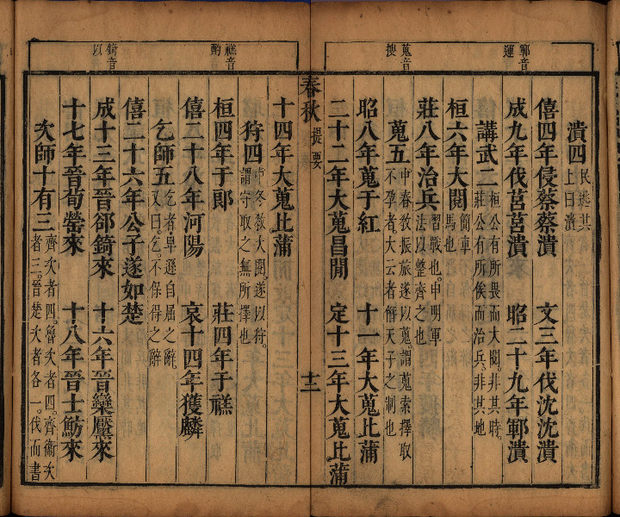 鄆音
運
蒐音
搜
禚音
酌
錡音
以
潰四民逃其上曰潰
僖四年侵蔡蔡潰 文三年伐沈沈潰
成九年伐莒莒潰 昭二十九年鄆潰
講武二桓公有所畏而大閱非其時莊公有所俟而治兵非其地
桓六年大閱簡車馬也
莊八年治兵習戰也申明軍法以整齊之也
蒐五中春教振旅遂以蒐謂蒐索擇取不孕者大云者僭天子之制也
昭八年蒐于紅 十一年大蒐比蒲
二十二年大蒐昌間 定十三年大蒐比蒲
春秋 提要 十二
十四年大蒐比蒲
狩四中冬教大閱遂以狩謂守取之無所擇也
桓四年于郎 莊四年于禚
僖二十八年河陽 哀十四年獲麟
乞師五乞者卑遜自屈之辭又曰乞不保得之辭
僖二十六年公子遂如楚
成十三年晉郤錡來 十六年晉欒黶來
十七年晉荀罃來 十八年晉士魴來
次師十有三齊次者四魯次者四齊衞次者三晉楚次者各一伐而書